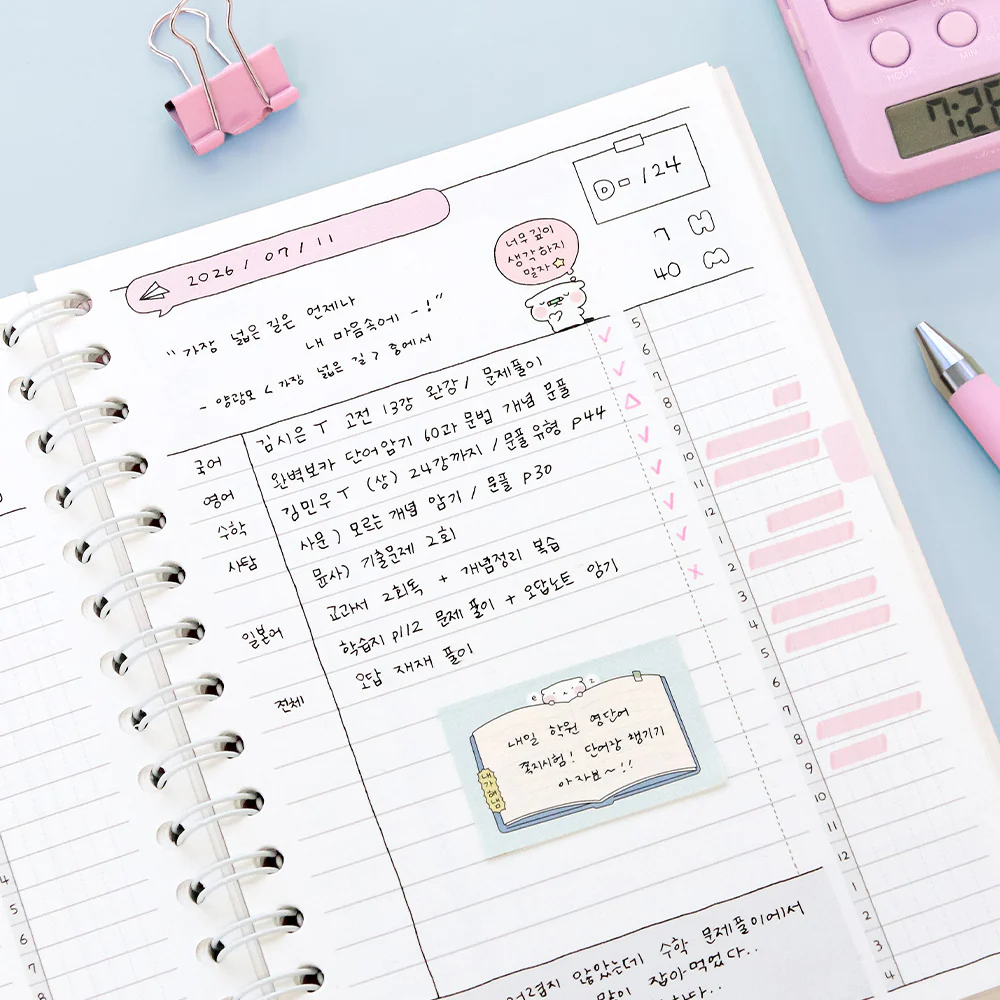 7:28
UP
HOUR
MIN
D-124
2026 / 07 / 11
7 H
40 M
너무 깊이
생각하지
말자
"가장 넓은 길은 언제나
내 마음속에 - !"
- 양광모 < 가장 넓은 길 > 중에서
국어 김시은 T 고전 13강 완강 / 문제풀이 ✓
영어 완벽보카 단어암기 60과 문법 개념 문풀 ✓
수학 김민우 T (상) 24강까지 / 문풀 유형 p44 △
사탐 사문) 모르는 개념 암기 / 문풀 p30 ✓
윤사) 기출문제 2회 ✓
교과서 2회독 + 개념정리 복습 ✓
일본어 학습지 p112 문제 풀이 + 오답노트 암기 ✓
전체 오답 재재 풀이 ×
내일 학원 영단어
쪽지시험! 단어장 챙기기
아자뵤~!!
내가해냄
5
6
7
8
9
10
11
12
1
2
3
4
5
6
7
8
9
10
11
12
1
2
3
4
4
5
6
7
않았는데 수학 문제풀이에서
많이 잡아먹었다..